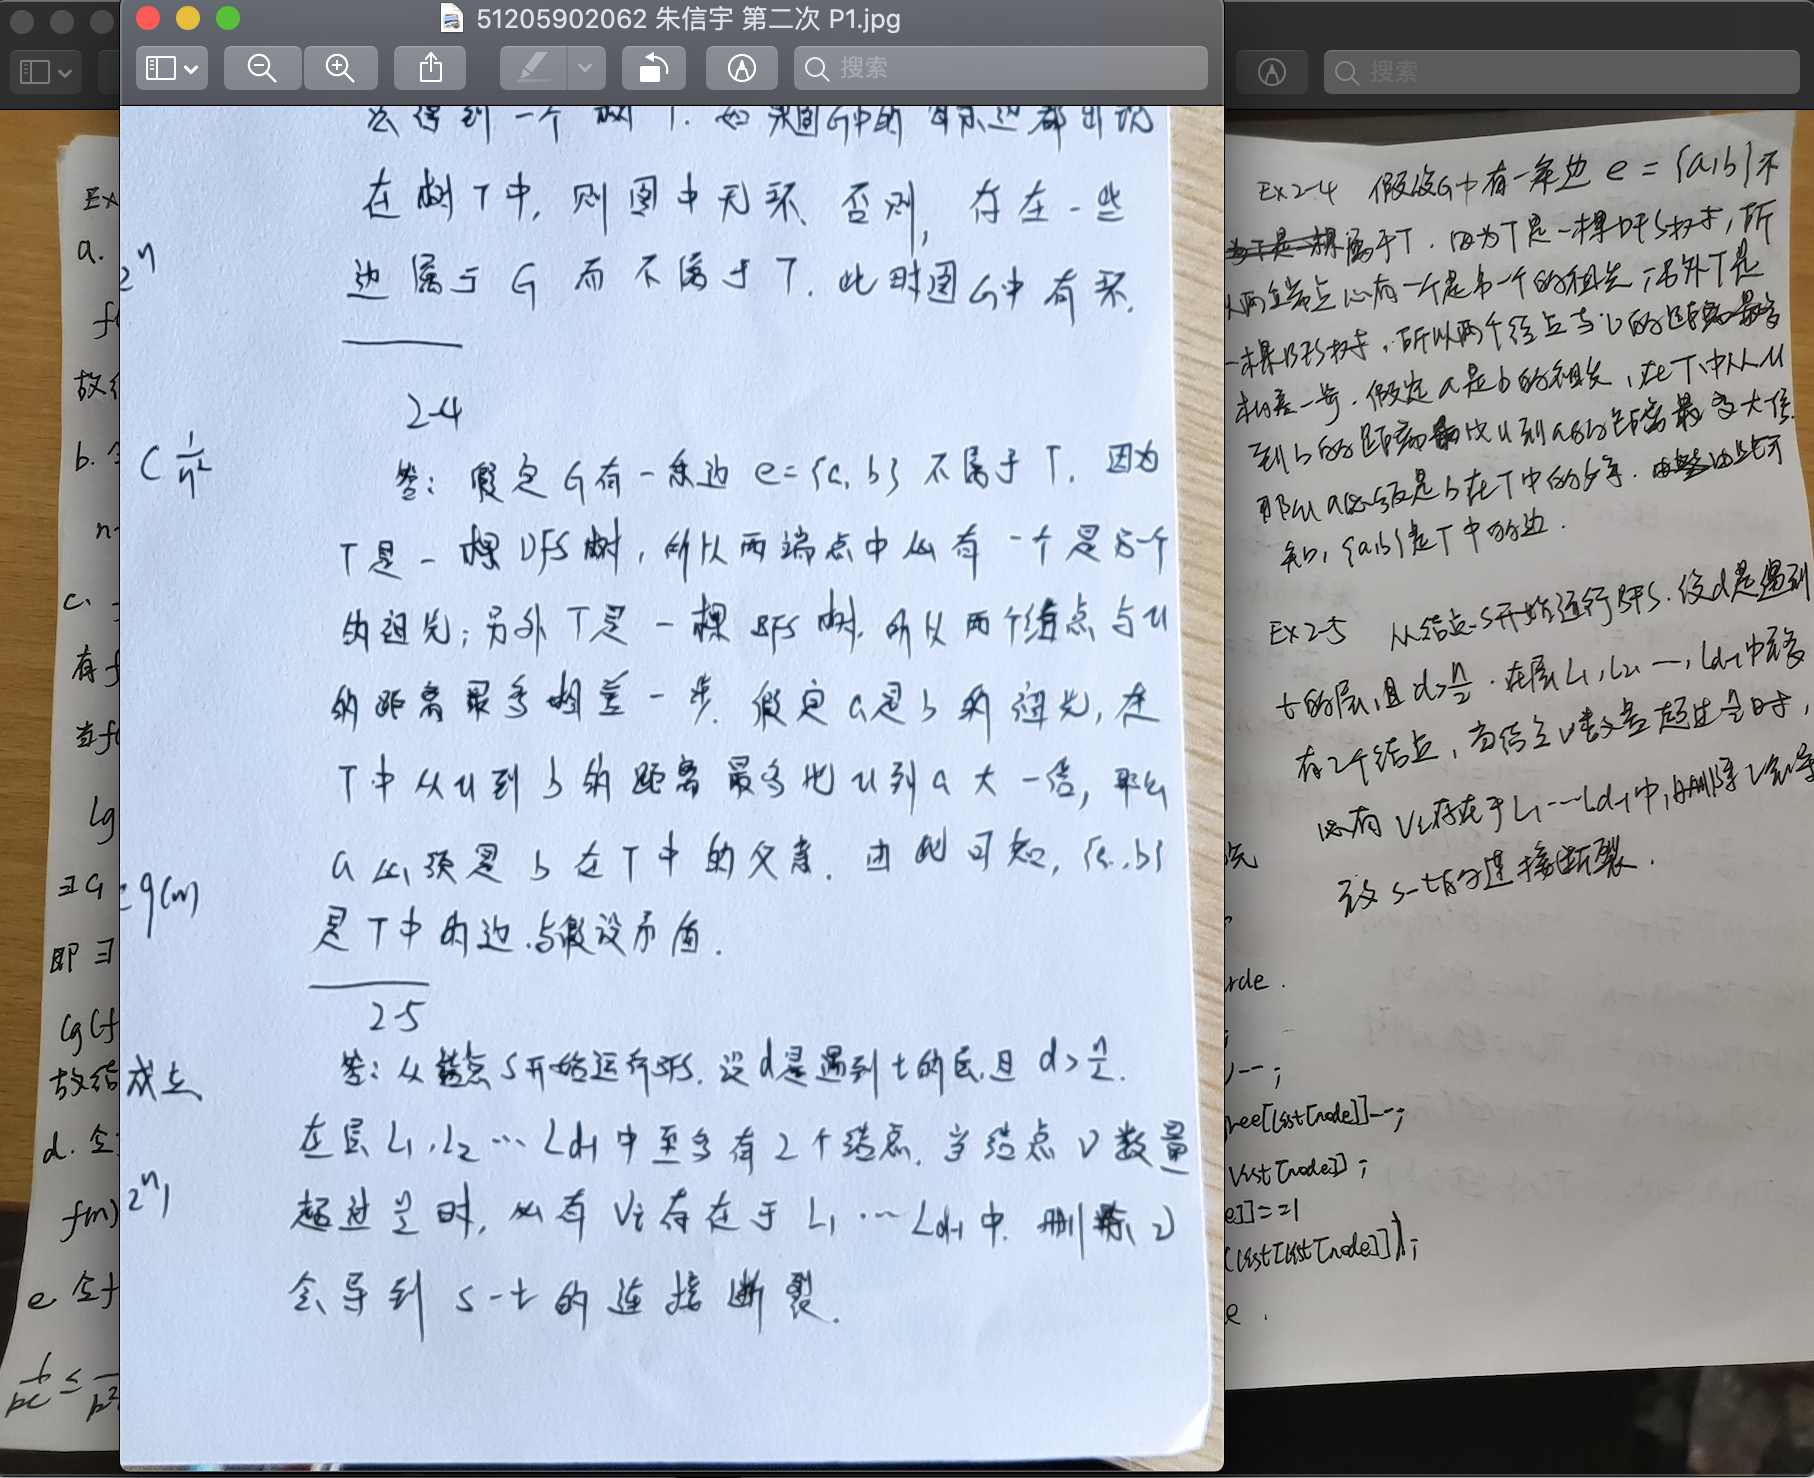 51205902062 朱信宇 第二次 P1.jpg
搜索
搜索
会得到一个树T. 如果图G中的每条边都出现
在树T中, 则图中无环. 否则, 存在一些
边属于G而不属于T. 此时图G中有环.
2-4
答: 假定G有一条边 e={a, b} 不属于T. 因为
T是一棵DFS树, 所以两端点中必有一个是另一个
的祖先; 另外T是一棵BFS树. 所以两个结点与u
的距离最多相差一步. 假定a是b的祖先, 在
T中从u到b的距离最多比u到a大一倍, 那么
a必须是b在T中的父亲. 由此可知, {a, b}
是T中的边. 与假设矛盾.
2-5
答: 从结点S开始运行BFS. 设d是遇到t的层, 且 d>n/2.
在层L1, L2 … Ld-1中至多有2个结点. 当结点V数量
超过n/2时, 必有Vi存在于L1 … Ld-1中. 删除v
会导到 s-t的连接断裂.
Ex
a.
2^n
f(
故
b. 令
( 1/n²
n
c.
有f
当f(
lg
∃G
g(n)
即∃
lg(f
故结
成立
d. 令
2^n)
f(n)
e 令f
Ex2-4 假设G中有一条边 e = {a,b}不
属于T. 因为T是一棵DFS树, 所
以两个端点必有一个是另一个的祖先; 另外T是
一棵BFS树, 所以两个结点与u的距离最多
相差一步. 假定a是b的祖先, 在T中从u
到b的距离比u到a的距离最多大一倍.
那么a必须是b在T中的父亲. 由此可
知, {a,b}是T中的边.
Ex2-5 从结点S开始运行BFS. 设d是遇到
t的层, 且 d>n/2. 在层L1, L2, …, Ld-1中至多
有2个结点, 当结点V数量超过n/2时,
必有Vi存在于L1 … Ld-1中, 删除V会导
致 s-t的连接断裂.
rde.
)--;
ree[list[node]]--;
list[node]];
e]]==1
(list[list[node]]);
e.